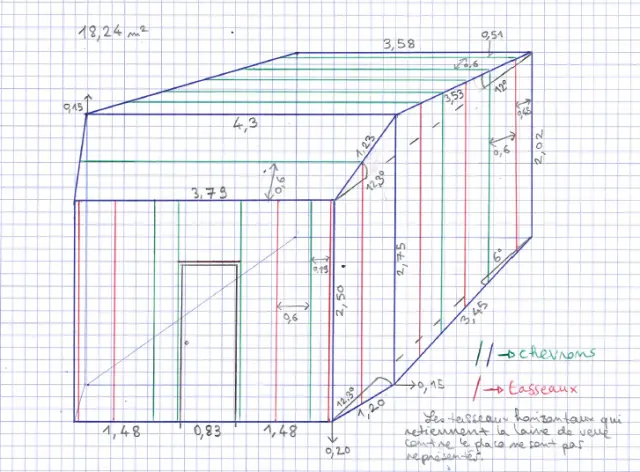 18,24 m²
3,58
0,51
0,6
12°
0,15
4,3
3,53
0,6
2,02
1,23
123°
0,6
3,79
0,6
2,50
2,75
6°
3,45
// → chevrons
/ → tasseaux
123°
1,20
→ 0,15
1,48
0,83
1,48
0,20
Les tasseaux horizontaux qui
retiennent la laine de verre
contre le placo ne sont pas
représentés.